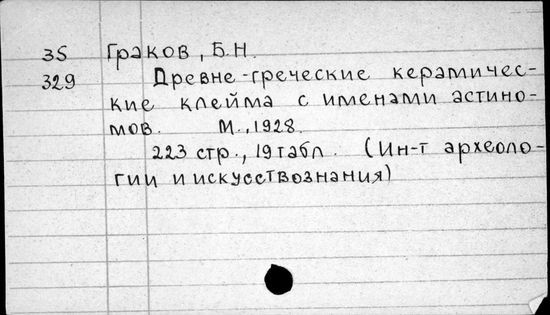 35 Граков, Б.Н.
329 Древне-греческие керамичес-
кие клейма с именами астино-
мов. М., 1928.
223 стр., 19 табл. (Ин-т археоло-
гии и искусствознания)